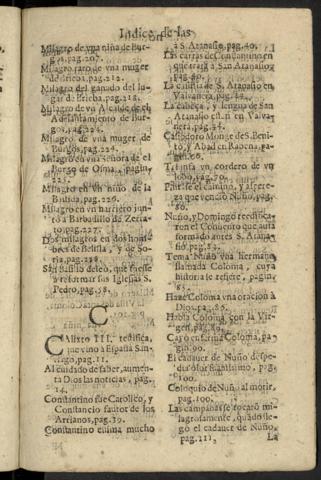 Indice de las
Milagro de vna niña de Bur-
gos, pag. 207.
Milagro raro de vna muger
de Ericba, pag. 212.
Milagro del ganado del lu-
gar de Ericba, pag. 218.
Milagro de vn Alcalde en el
Adelantamiento de Bur-
gos, pag. 224.
Milagro de vna muger de
Burgos, pag. 224.
Milagro en vna señora de el
Burgo de Osma, pagin.
225.
Milagro en vn niño de la
pag. 226.
Milagro en vn harriero jun-
to a Barbadillo de
pag. 227.
Dos milagros en dos hom-
bres de y de So-
ria, pag. 228.
San Basilio deseò, que fuesse
a reformar sus Iglesias S.
Pedro, pag. 58.
C
Calixto III. reedifica,
que vino a España San-
tiago, pag. 11.
Al cuidado de saber, aumen-
ta Dios las noticias, pag.
14.
Constantino fue Catolico, y
Constancio fautor de los
Arrianos, pag. 39.
Constantino estima mucho
à S. Atanasio, pag. 40.
Las cartas de Constantino en
que trata à San Atanasio,
pag. 50.
La casulla de S. Atanasio en
Valvanera, pag.
La cabeça, y lengua de San
Atanasio està en Valva-
nera, pag. 54.
Calodoro Monge de S. Beni-
to, y Abad en pa-
gin. 60.
vn cordero de vn
lobo, pag. 70.
el camino, y aspere-
za que venciò Nuño, pag.
80.
Nuño, y Domingo reedifica-
ron el Convento que auia
formado antes S. Atana-
sio, pag. 83.
Tenia Nuño vna hermana
llamada Coloma, cuya
historia se refiere, pagin.
85.
Haze Coloma vna oracion à
Dios, pag. 86.
Habla Coloma con la Vir-
gen, pag. 89.
Cayò enferma Coloma, pa-
gin. 90.
El cadauer de Nuño despe-
dia olor suauissimo, pag.
Coloquio de Nuño al morir,
pag. 100.
Las campanas se tocarō mi-
lagrosamente, quādo lle-
gò el cadauer de Nuño,
pag. 111,
La